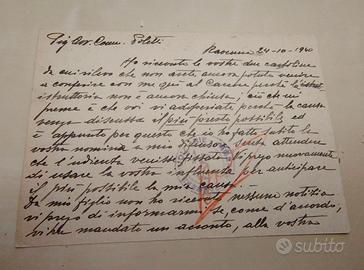 Sig. Avv. Comm. Poletti
Ravenna 24-10-1940
Ho ricevuto le vostre due cartoline
da cui rilevo che non avete ancora potuto venire
a conferire con me qui al Carcere perché l'
istruttoria non è ancora chiusa, ciò che mi
preme è che voi vi adoperiate perché la causa
venga discussa il più presto possibile ed
è appunto per questo che io ho fatto subito la
vostra nomina a mio difensore senza attendere
che l'udienza venisse fissata. Vi prego nuovamente
di usare la vostra influenza per anticipare
il più possibile la mia causa.
Da mio figlio non ho ricevuto nessuna notizia
vi prego di informarmi se, come d'accordo,
vi ha mandato un acconto, alla vostra
subito